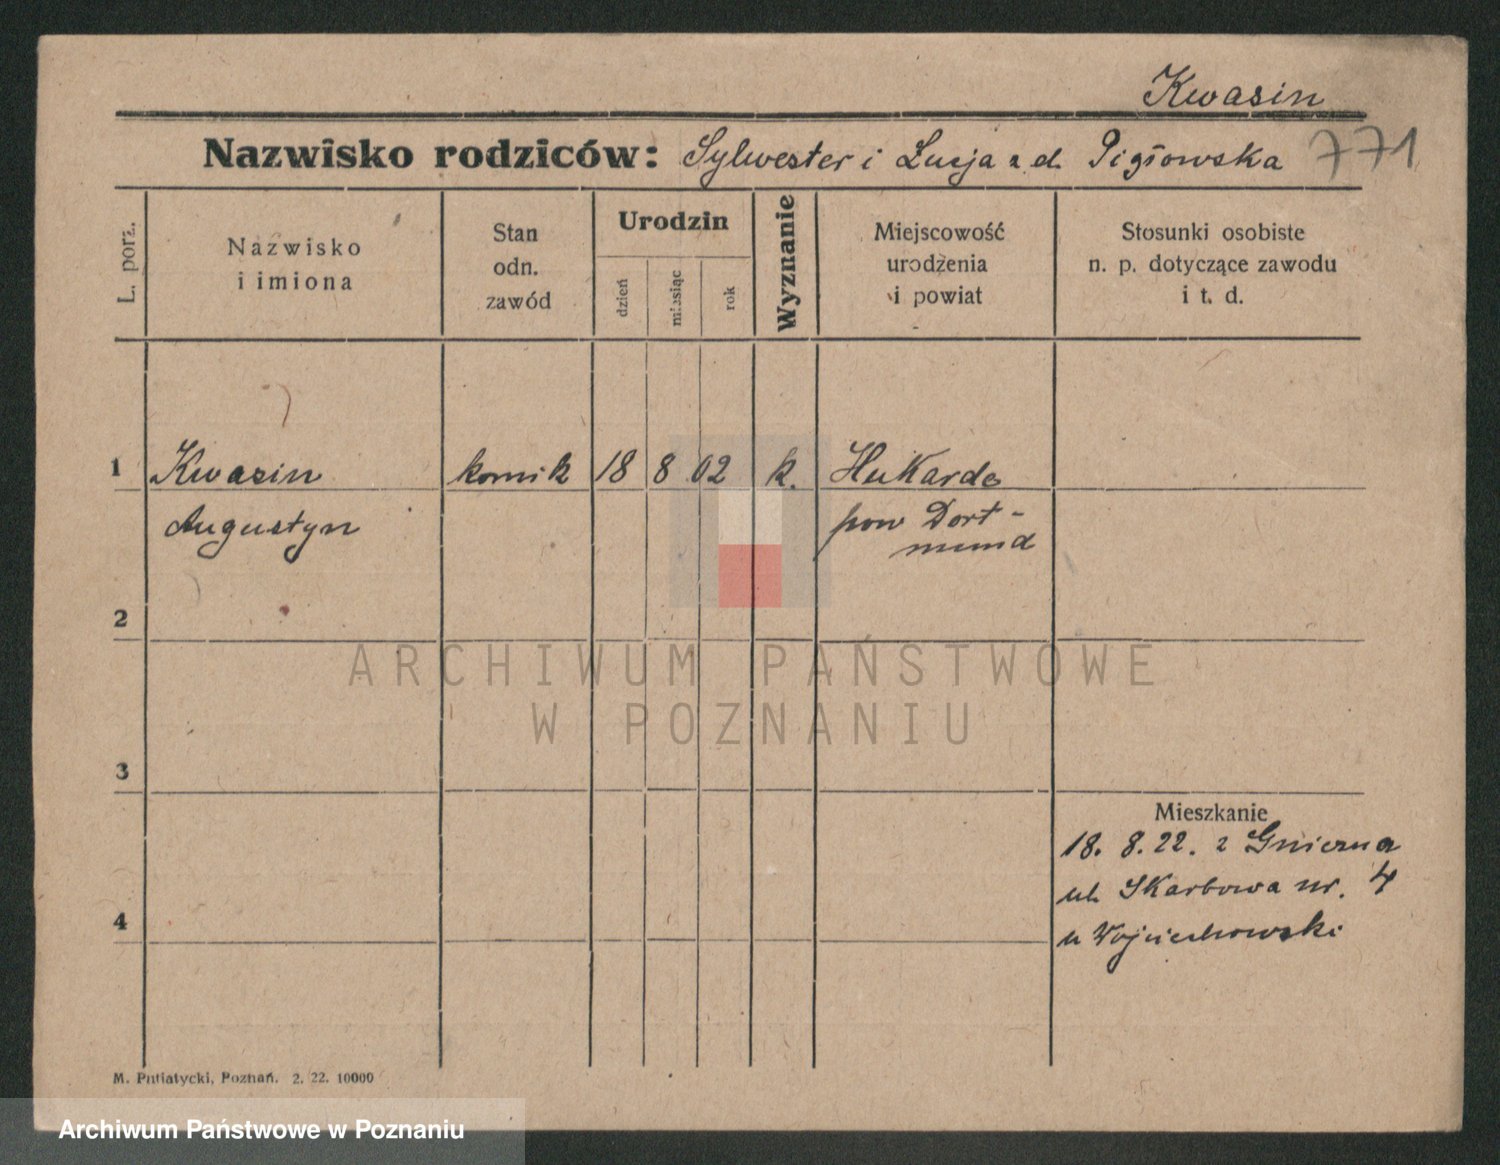 Kwasin
Nazwisko rodziców: Sylwester i Łucja z d. Pigłowska 771
L. porz.
Nazwisko
i imiona
Stan
odn.
zawód
Urodzin
dzień
miesiąc
rok
Wyznanie
Miejscowość
urodzenia
i powiat
Stosunki osobiste
n. p. dotyczące zawodu
i t. d.
1 Kwasin komik 18 8 02 k. Hukarde
Augustyn pow Dort-
mund
2
ARCHIWUM PAŃSTWOWE
W POZNANIU
3
Mieszkanie
18. 8. 22. z Gniezna
ul. Skarbowa nr. 4
u Wojciechowski
4
M. Putiatycki, Poznań. 2. 22. 10000
Archiwum Państwowe w Poznaniu